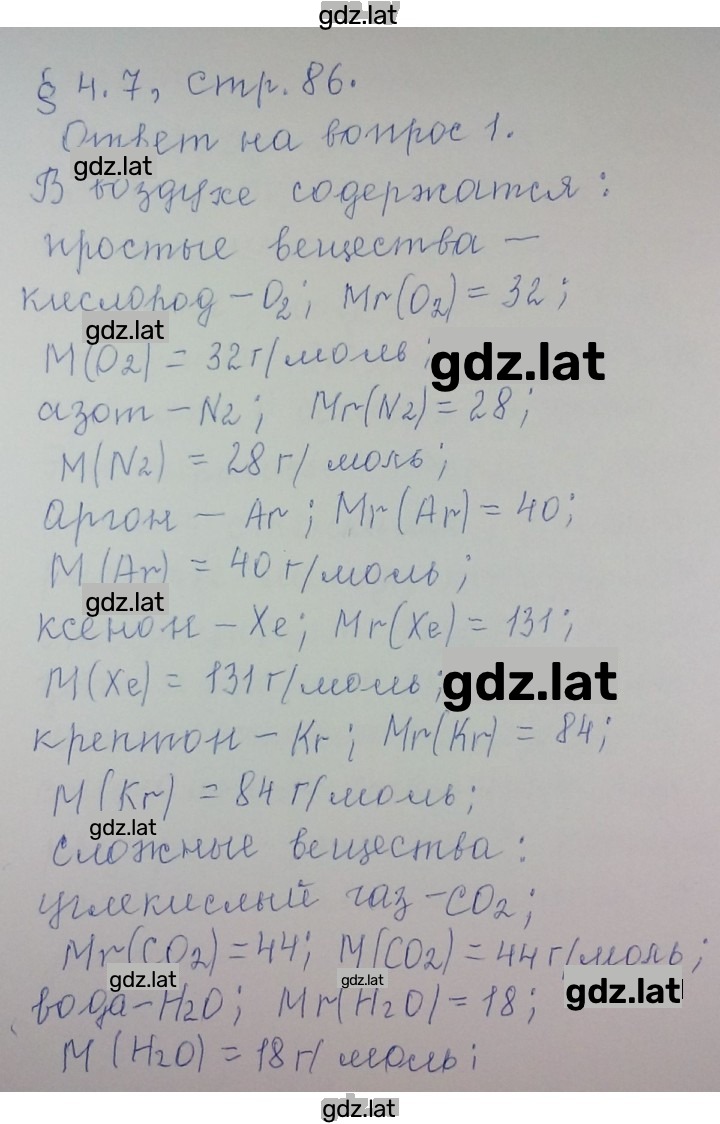 gdz.lat
§ 4.7, стр. 86.
Ответ на вопрос 1.
gdz.lat
В воздухе содержатся:
простые вещества —
кислород – O2; Mr(O2) = 32;
gdz.lat
M(O2) = 32 г/моль;
gdz.lat
азот – N2; Mr(N2) = 28;
M(N2) = 28 г/моль;
аргон – Ar; Mr(Ar) = 40;
M(Ar) = 40 г/моль;
gdz.lat
ксенон – Xe; Mr(Xe) = 131;
M(Xe) = 131 г/моль;
gdz.lat
крептон – Kr; Mr(Kr) = 84;
M(Kr) = 84 г/моль;
gdz.lat
сложные вещества:
углекислый газ – CO2;
Mr(CO2) = 44; M(CO2) = 44 г/моль;
gdz.lat
gdz.lat
gdz.lat
вода – H2O; Mr(H2O) = 18;
M(H2O) = 18 г/моль;
gdz.lat